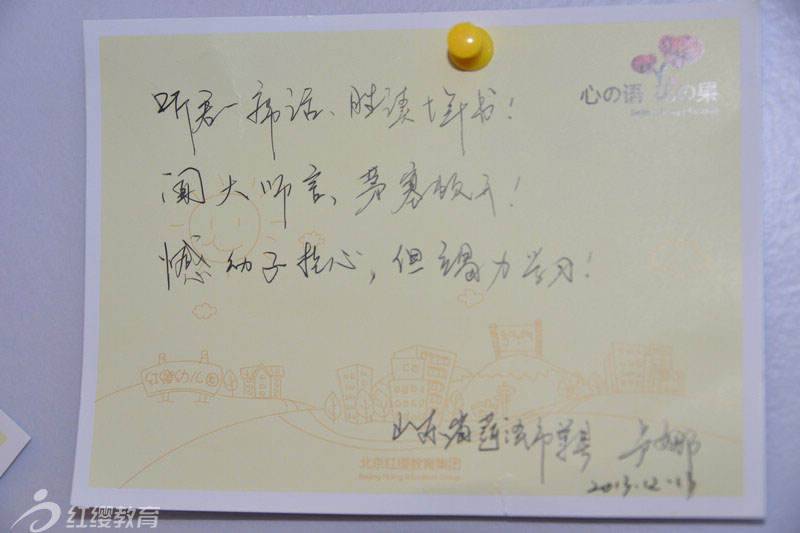 心の语 の果
听君一席话、胜读十年书！
闻大师言、茅塞顿开！
憾幼子扰心，但竭力学习！
红缨幼儿园
山东省菏泽市单县
2013.12.13
北京红缨教育集团
Beijing Hoing Education Group
红缨教育